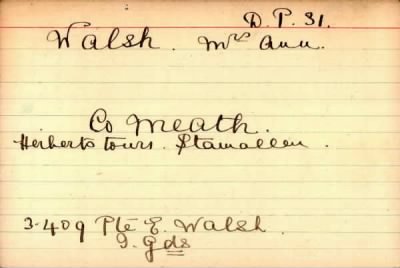 D.P. 31.
Walsh. Mrs Ann.
Co Meath.
Herbertstours. Stamallen.
3409 Pte E. Walsh.
I. Gds